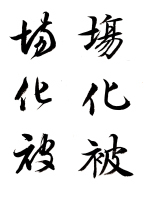 塲化被
場化被